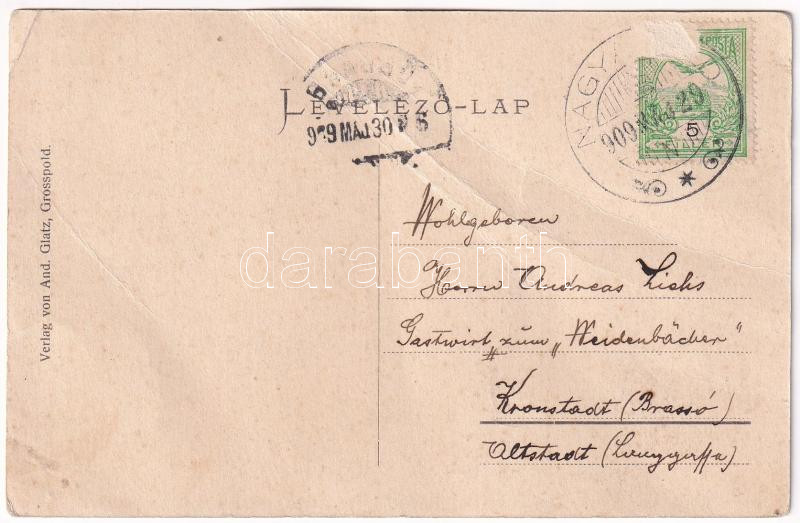 LEVELEZŐ-LAP
909 MÁJ 30
NAGYA
909 MÁJ 29
POSTA
5
Wohlgeboren
Herrn Andreas Lichs
Gastwirt "zum „Weidenbächer"
Kronstadt (Brassó)
Altstadt (Langgasse)
Verlag von And. Glatz, Grosspold.
darabanth